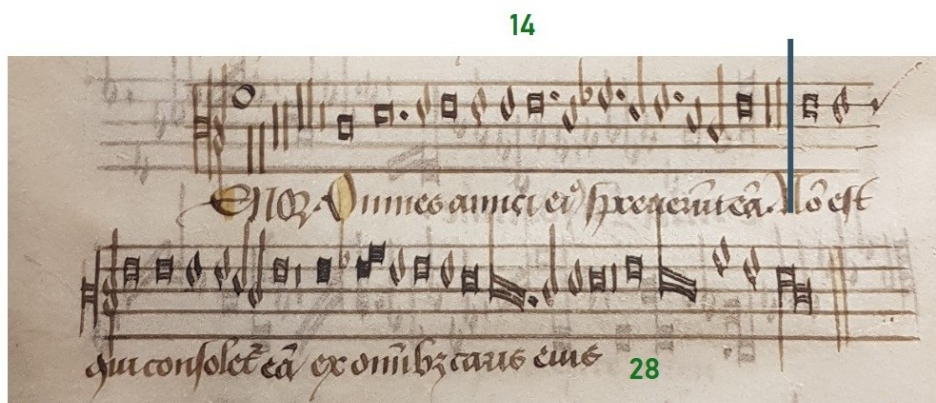 14
TENOR. Omnes amici eiꝰ spreuerūt eā. Nō est
qui consoleꝉ eā ex omībꝫ caris eius
28